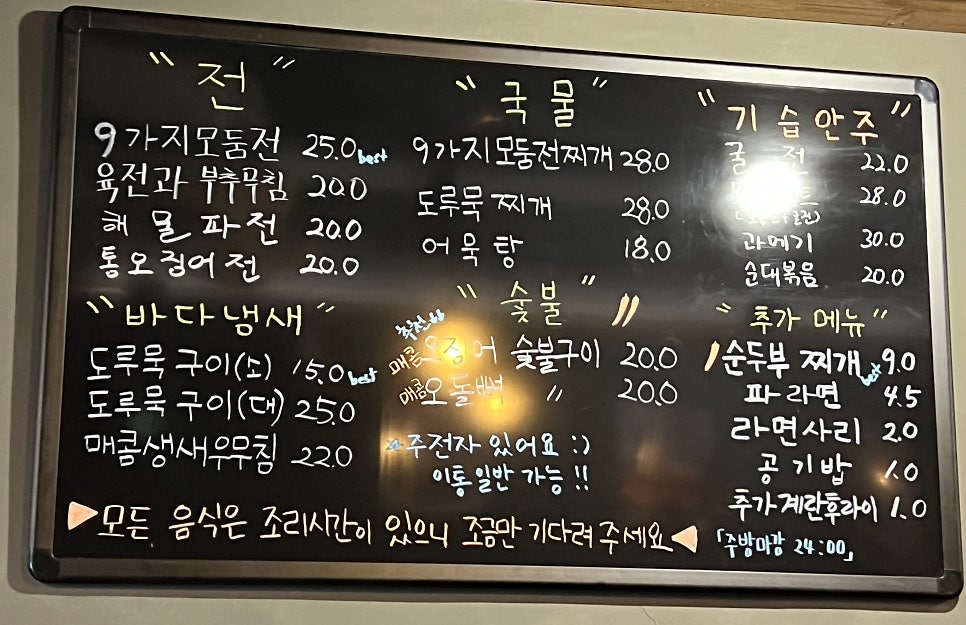 "전"
9가지모둠전 25.0 best
육전과 부추무침 20.0
해물파전 20.0
통오징어전 20.0
"바다냄새"
도루묵 구이(소) 15.0 best
도루묵 구이(대) 25.0
매콤생새우무침 22.0
"국물"
9가지모둠전찌개 28.0
도루묵찌개 28.0
어묵탕 18.0
"숯불"
매콤 오징어 숯불구이 20.0
매콤 오돌뼈 〃 20.0
*주전자 있어요 :)
이통일반 가능!!
"기습안주"
굴전 22.0
28.0
과메기 30.0
순대볶음 20.0
"추가 메뉴"
순두부 찌개 best 9.0
파라면 4.5
라면사리 2.0
공기밥 1.0
추가 계란후라이 1.0
「주방마감 24:00」
▶모든 음식은 조리시간이 있으니 조금만 기다려 주세요◀